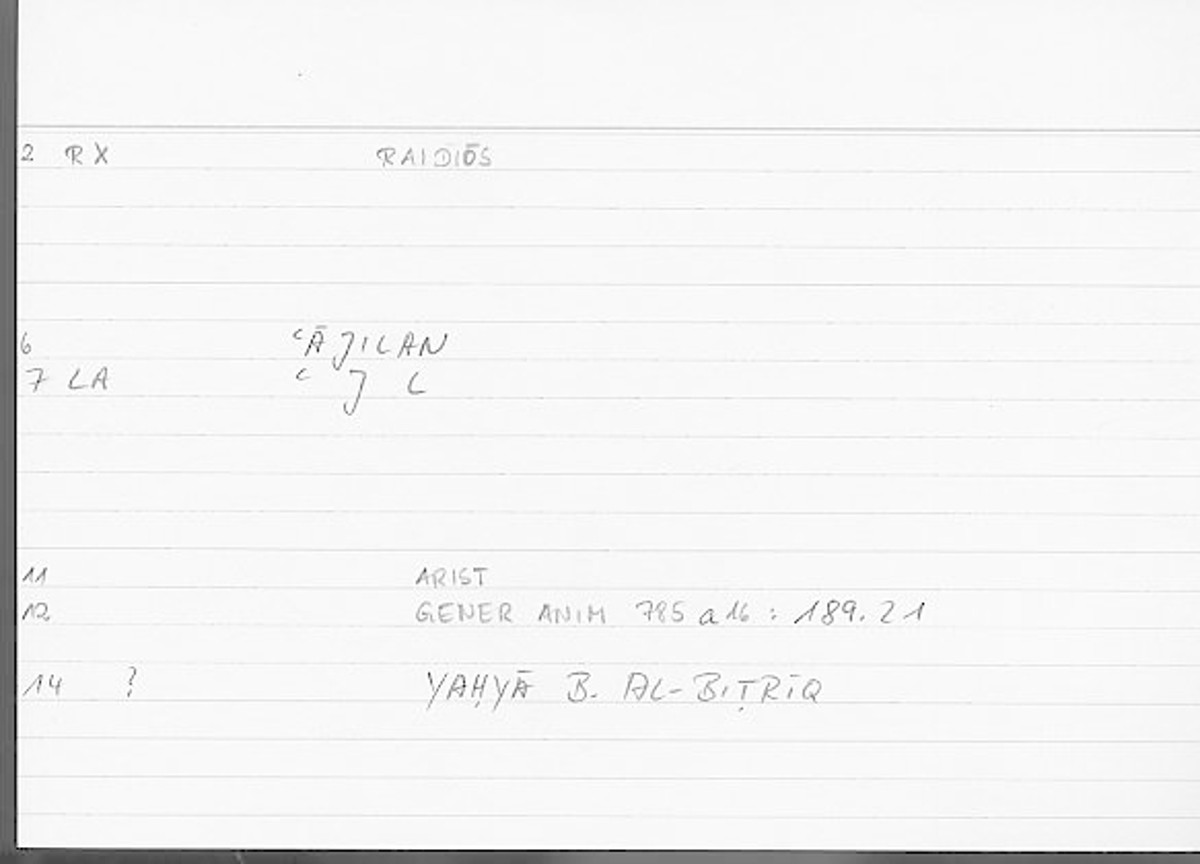 2 RX RAIDIŌS
6 ʿĀJILAN
7 LA ʿ J L
11 ARIST
12 GENER ANIM 785 a 16 : 189.21
14 ? YAḤYĀ B. AL-BIṬRĪQ